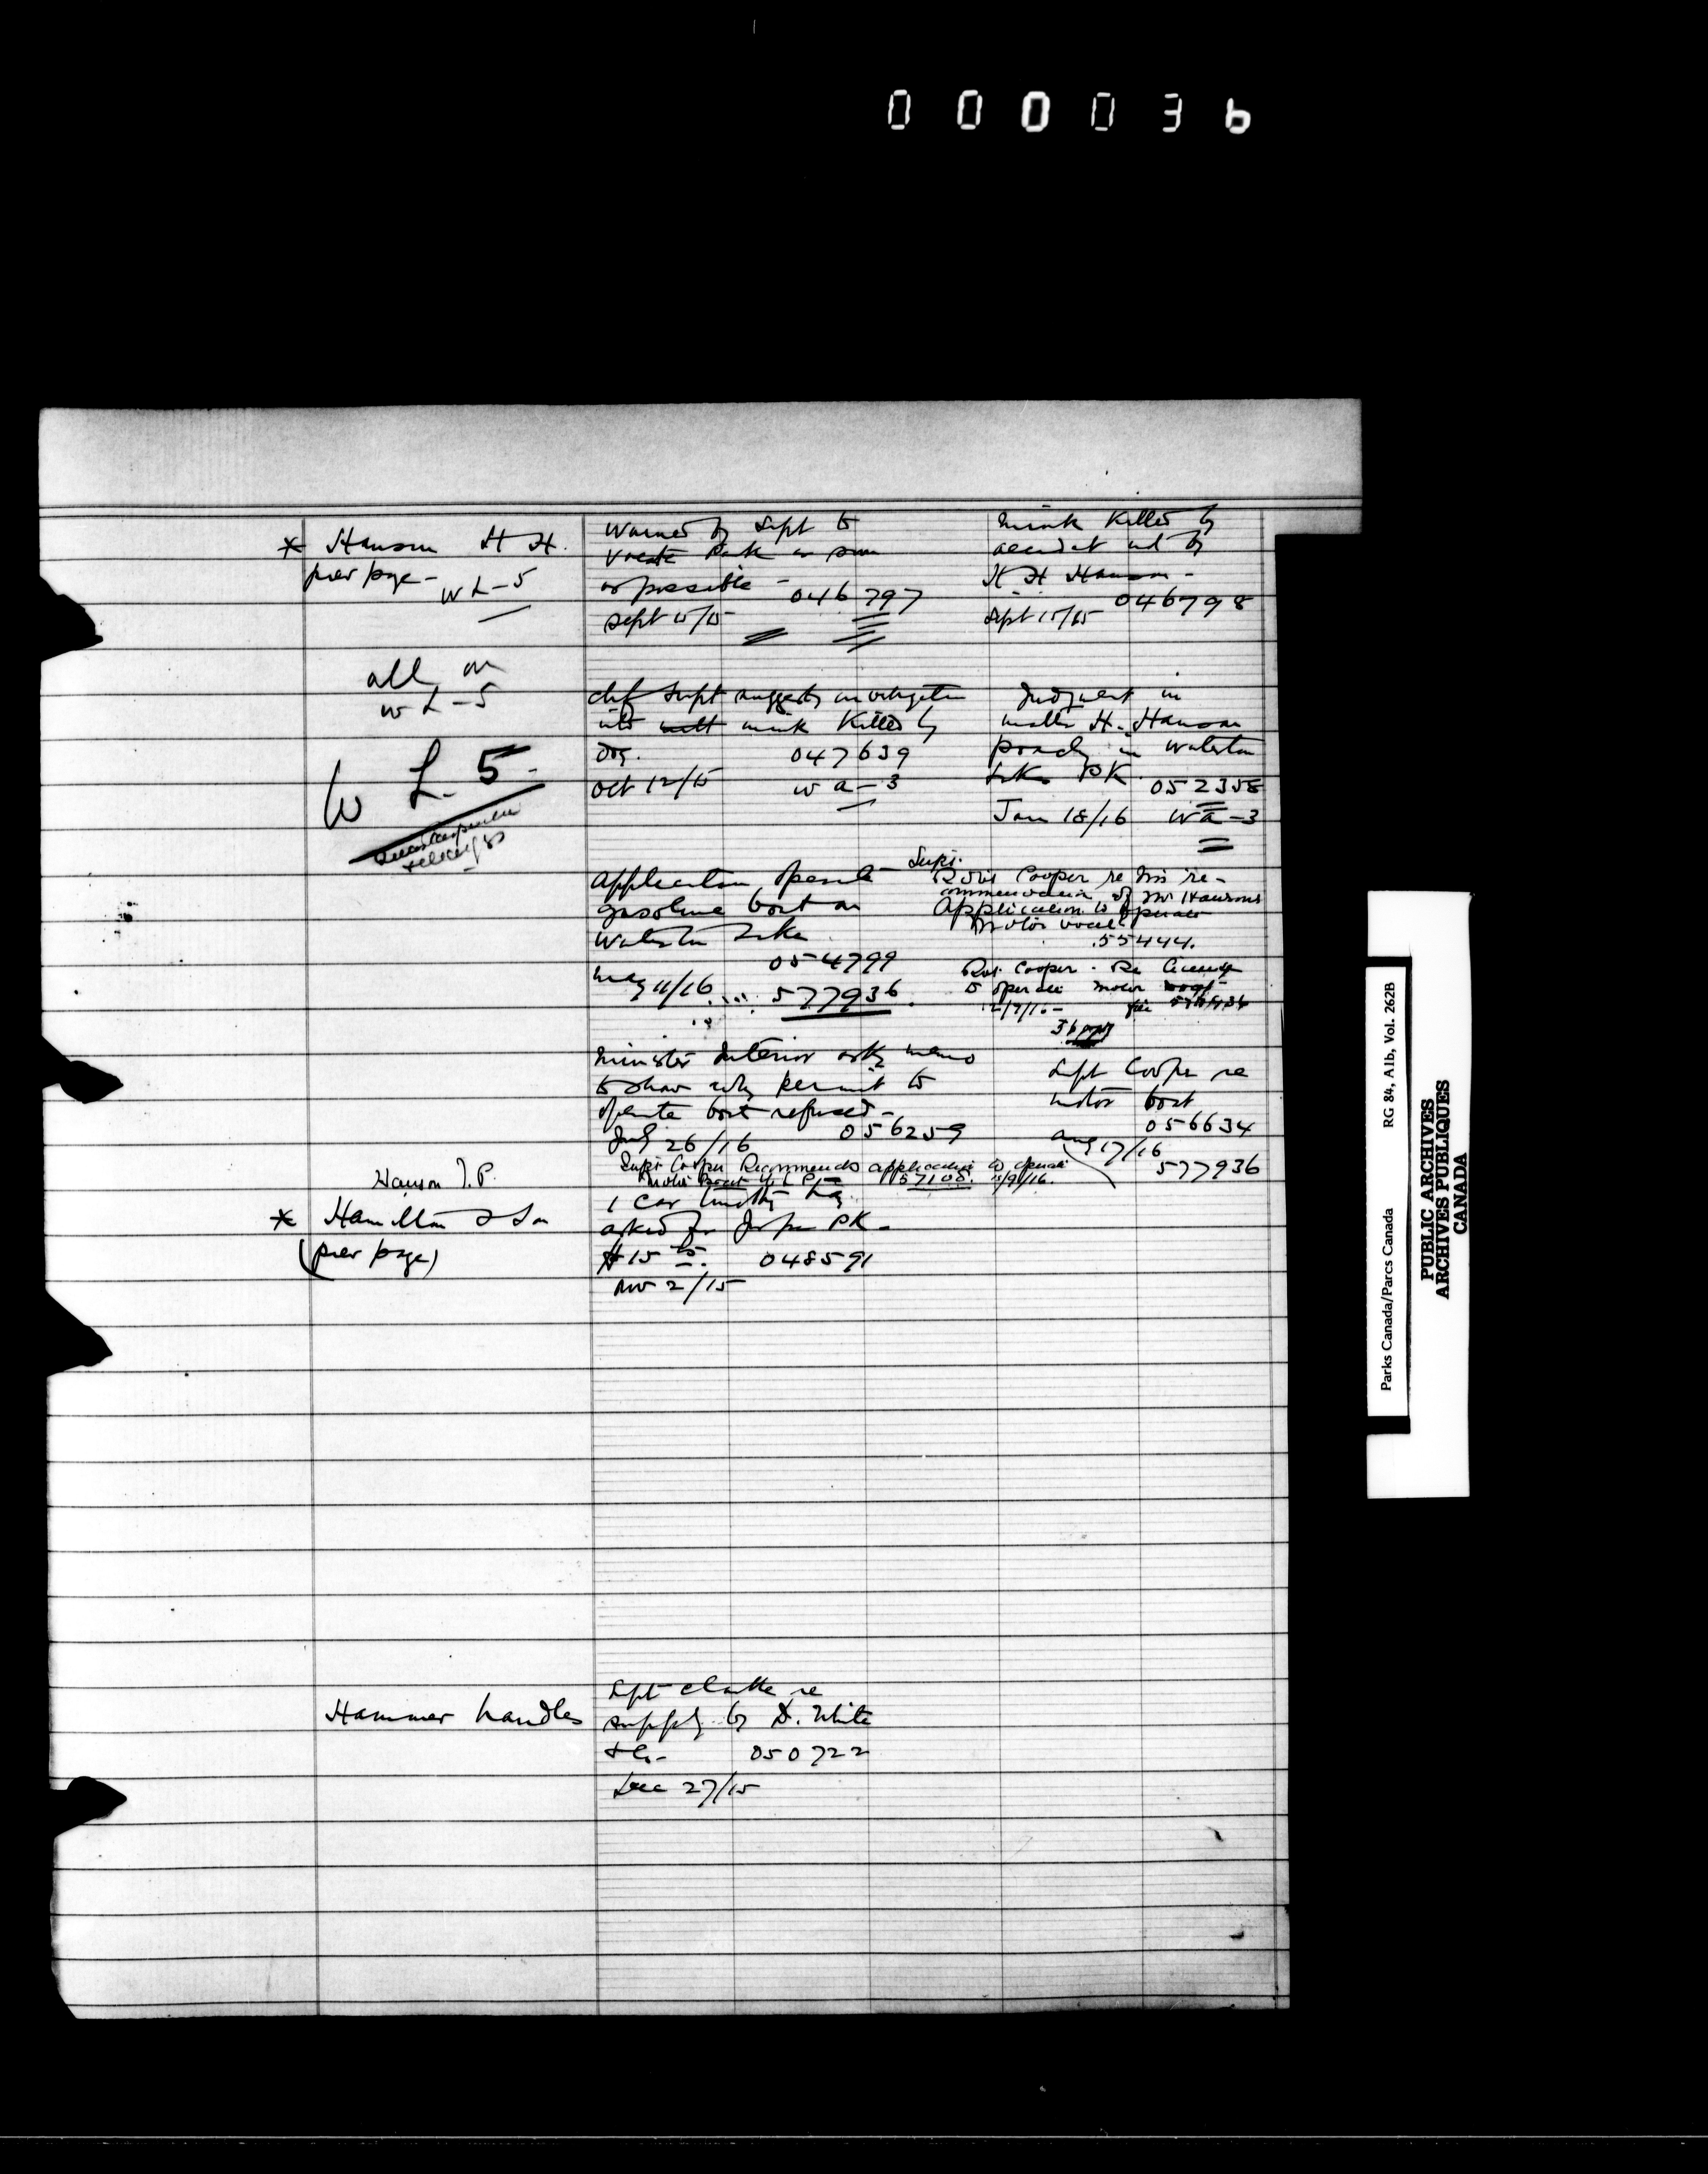 000036
* Hanson H H.
prev page -
W L-5
Warned by Supt to
vacate Park as soon
as possible - 046797
Sept 15/15
Mink Killed by
accident not by
H. H Hanson -
046798
Sept 15/15
all on
W L-5
W L. 5-
Chf Supt suggests investigation
into mink Killed by
Dog. 047639
Oct 12/15 W a-3
Judgment in
matter H. Hanson
poachg in Waterton
Lakes PK. 052358
Jan 18/16 W a-3
Application operate
gasoline boat on
Waterton Lake
054799
May 11/16 577936.
Supt.
Robt Cooper re his re-
commendation of Mr Hansons
Application to operate
Motor boat
55444.
Rob. Cooper. Re License
to operate motor boat
12/7/16-
Minister Interior asks memo
to show why permit to
operate boat refused -
July 26/16 056259
Supt Cooper re
motor boat
056634
Aug 17/16
577936
Supt Cooper Recommends application to operate
Motor Boat W L Pk 57108. 15/9/16.
Hanson T. P.
* Hamilton & Son
(prev page)
1 Car
asked for Jasper PK -
$15 048591
Nov 2/15
Hammer handles
Supt Clarke re
supply by D. White
& Co- 050722
Dec 27/15
Parks Canada/Parcs Canada RG 84, A1b, Vol. 262B
PUBLIC ARCHIVES
ARCHIVES PUBLIQUES
CANADA